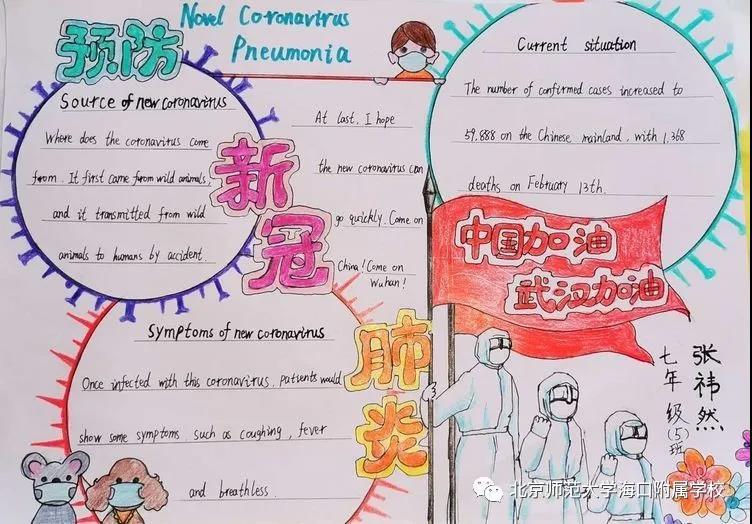 预防
Novel Coronavirus
Pneumonia
Source of new coronavirus
Where does the coronavirus come
from. It first came from wild animals,
and it transmitted from wild
animals to humans by accident.
新
冠
肺
炎
At last, I hope
the new coronavirus can
go quickly. Come on
China! Come on
Wuhan!
Current situation
The number of confirmed cases increased to
59,888 on the Chinese mainland, with 1,368
deaths on February 13th.
中国加油
武汉加油
Symptoms of new coronavirus
Once infected with this coronavirus, patients would
show some symptoms, such as coughing, fever
and breathless.
张祎然
七年级(5)班
北京师范大学海口附属学校